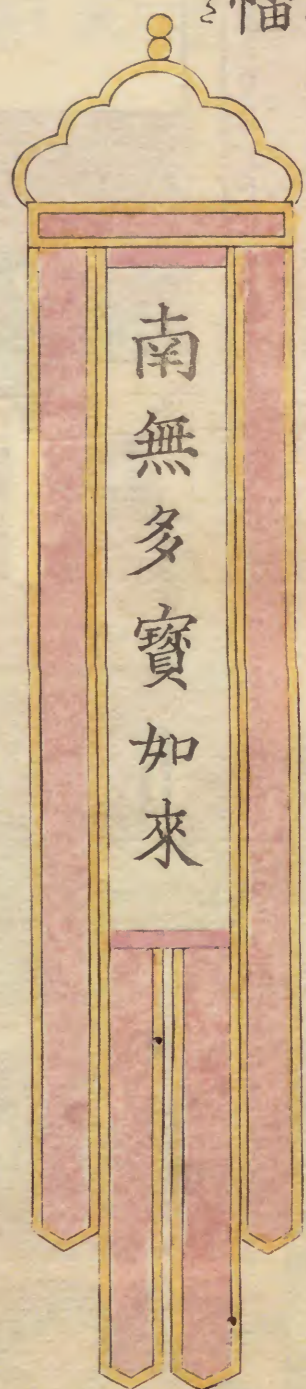 幡
南無多寶如來